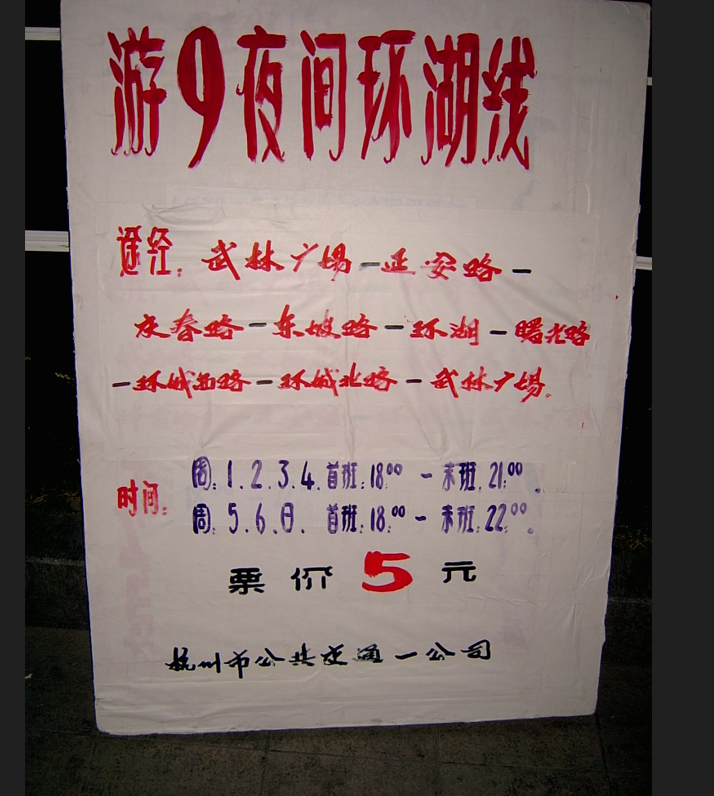 游9夜间环湖线
途经：武林广场—延安路—
庆春路—东坡路—环湖—曙光路
—环城西路—环城北路—武林广场.
时间：周：1.2.3.4.首班：18:00－末班：21:00.
周：5.6.日.首班：18:00－末班：22:00。
票价5元
杭州市公共交通一公司